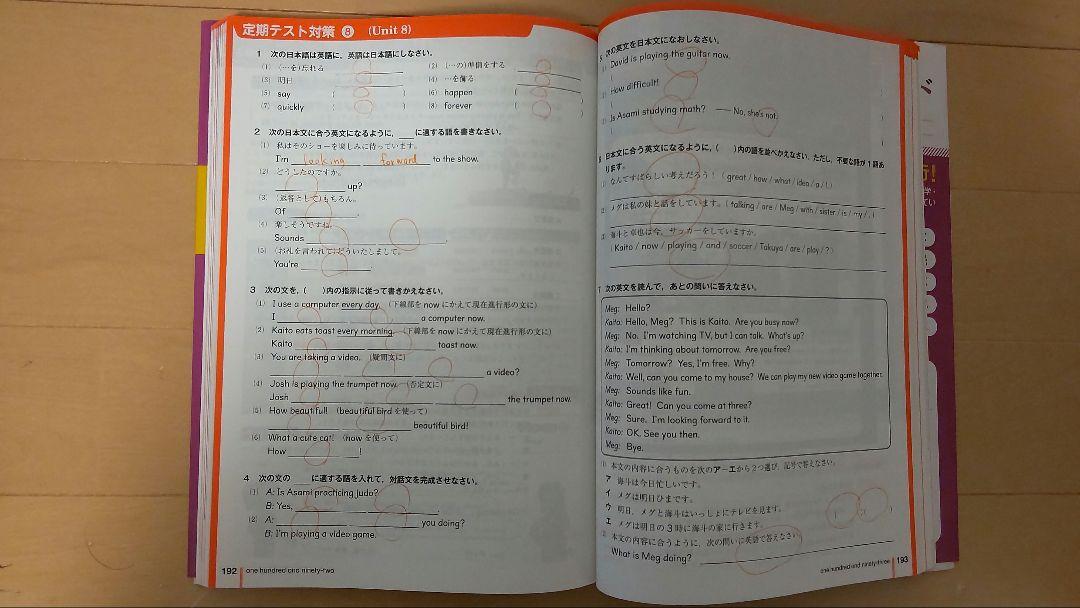 定期テスト対策 8 (Unit 8)
1 次の日本語は英語に、英語は日本語にしなさい。
(1) (…を)忘れる
(2) (…の)準備をする
(3) 明日
(4) …を飾る
(5) say ( )
(6) happen ( )
(7) quickly ( )
(8) forever ( )
2 次の日本文に合う英文になるように、___に適する語を書きなさい。
(1) 私はそのショーを楽しみに待っています。
I'm looking forward to the show.
(2) どうしたのですか。
up?
(3) (返答として)もちろん。
Of .
(4) 楽しそうですね。
Sounds .
(5) (お礼を言われて)どういたしまして。
You're .
3 次の文を、( )内の指示に従って書きかえなさい。
(1) I use a computer every day. (下線部を now にかえて現在進行形の文に)
I a computer now.
(2) Kaito eats toast every morning. (下線部を now にかえて現在進行形の文に)
Kaito toast now.
(3) You are taking a video. (疑問文に)
a video?
(4) Josh is playing the trumpet now. (否定文に)
Josh the trumpet now.
(5) How beautiful! (beautiful bird を使って)
beautiful bird!
(6) What a cute cat! (how を使って)
How !
4 次の文の___に適する語を入れて、対話文を完成させなさい。
(1) A: Is Asami practicing judo?
B: Yes, .
(2) A: you doing?
B: I'm playing a video game.
192 one hundred and ninety-two
5 次の英文を日本文になおしなさい。
David is playing the guitar now.
How difficult!
Is Asami studying math? — No, she's not.
6 日本文に合う英文になるように、( )内の語を並べかえなさい。ただし、不要な語が1語あります。
なんてすばらしい考えだろう！ ( great / how / what / idea / a / ! )
メグは私の妹と話をしています。( talking / are / Meg / with / sister / is / my / . )
海斗と卓也は今、サッカーをしていますか。
( Kaito / now / playing / and / soccer / Takuya / are / play / ? )
7 次の英文を読んで、あとの問いに答えなさい。
Meg: Hello?
Kaito: Hello, Meg? This is Kaito. Are you busy now?
Meg: No. I'm watching TV, but I can talk. What's up?
Kaito: I'm thinking about tomorrow. Are you free?
Meg: Tomorrow? Yes, I'm free. Why?
Kaito: Well, can you come to my house? We can play my new video game together.
Meg: Sounds like fun.
Kaito: Great! Can you come at three?
Meg: Sure. I'm looking forward to it.
Kaito: OK. See you then.
Meg: Bye.
本文の内容に合うものを次のア〜エから2つ選び、記号で答えなさい。
ア 海斗は今日忙しいです。
イ メグは明日ひまです。
ウ 明日、メグと海斗はいっしょにテレビを見ます。
エ メグは明日の3時に海斗の家に行きます。
本文の内容に合うように、次の問いに英語で答えなさい。
What is Meg doing?
one hundred and ninety-three 193